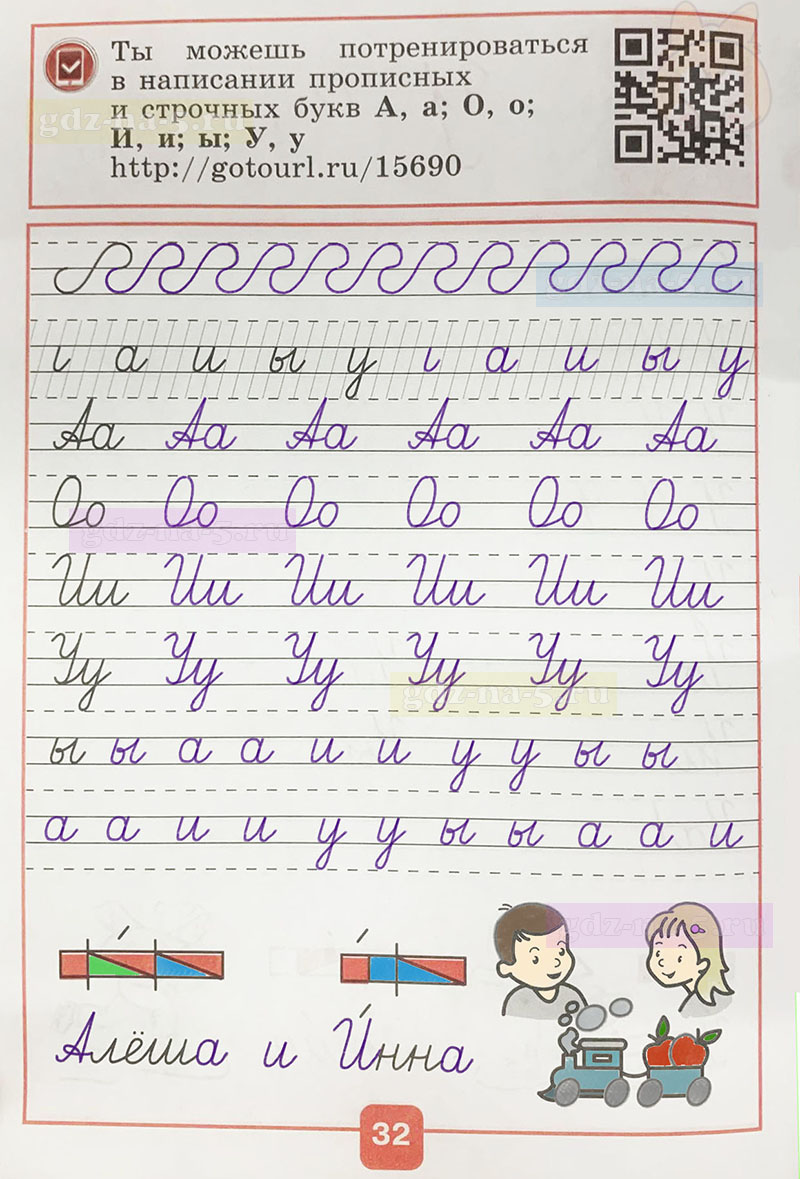 Ты можешь потренироваться
в написании прописных
и строчных букв А, а; О, о;
И, и; ы; У, у
http://gotourl.ru/15690
gdz-na-5.ru
ı а и ы у ı а и ы у
Аа Аа Аа Аа Аа Аа
Оо Оо Оо Оо Оо Оо
gdz-na-5.ru
Ии Ии Ии Ии Ии Ии
Уу Уу Уу Уу Уу Уу
gdz-na-5.ru
ы ы а а и и у у ы ы
а а и и у у ы ы а а и
gdz-na-5.ru
Алёша и И́нна
32